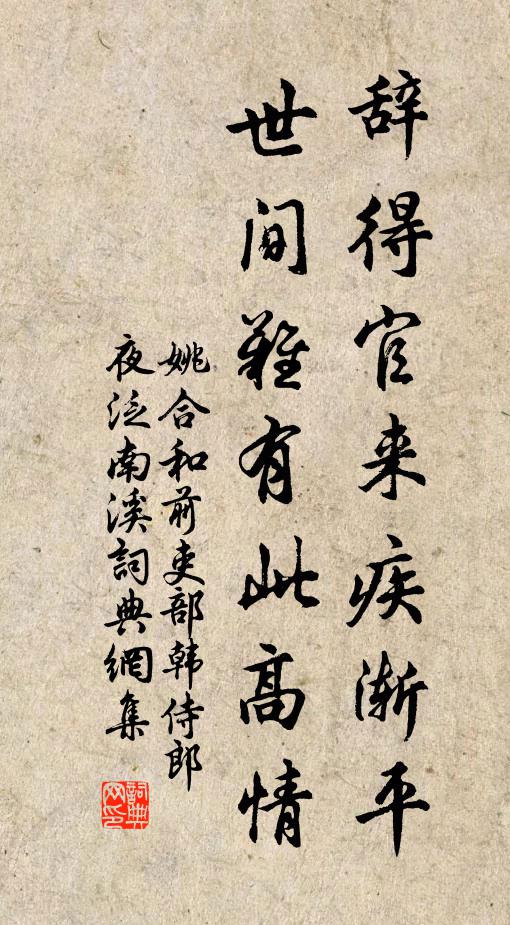 辞得官来疾渐平
世间难有此高情
姚合和前吏部韩侍郎
夜泛南溪詞典網集
詞典
网印